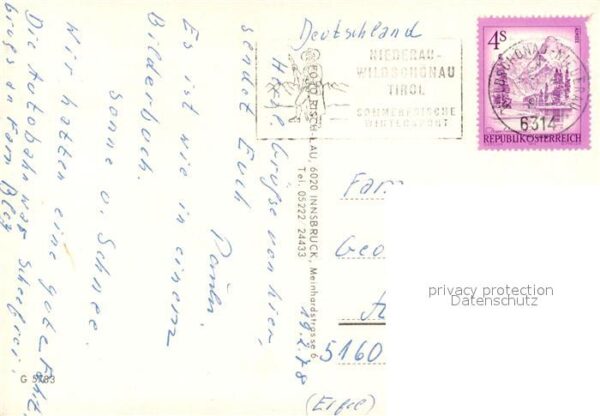 19.2.78
Wir hatten eine gute Fahrt.
Die Autobahn war Scheefrei.
Es ist wie in einem
Bilderbuch.
Sonne u. Schnee.
Herzl. Grüße von hier,
sendet Euch
G 5783
FOTO RISCH-LAU, 6020 INNSBRUCK, Meinhardstrasse 6
Tel. 05222 24433
Deutschland
NIEDERAU-
WILDSCHÖNAU
TIROL
SOMMERFRISCHE
WINTERSPORT
WILDSCHÖNAU-NIEDERAU
6314
4S
REPUBLIK ÖSTERREICH
Fam
Geo
5160
(Eifel)
privacy protection
Datenschutz